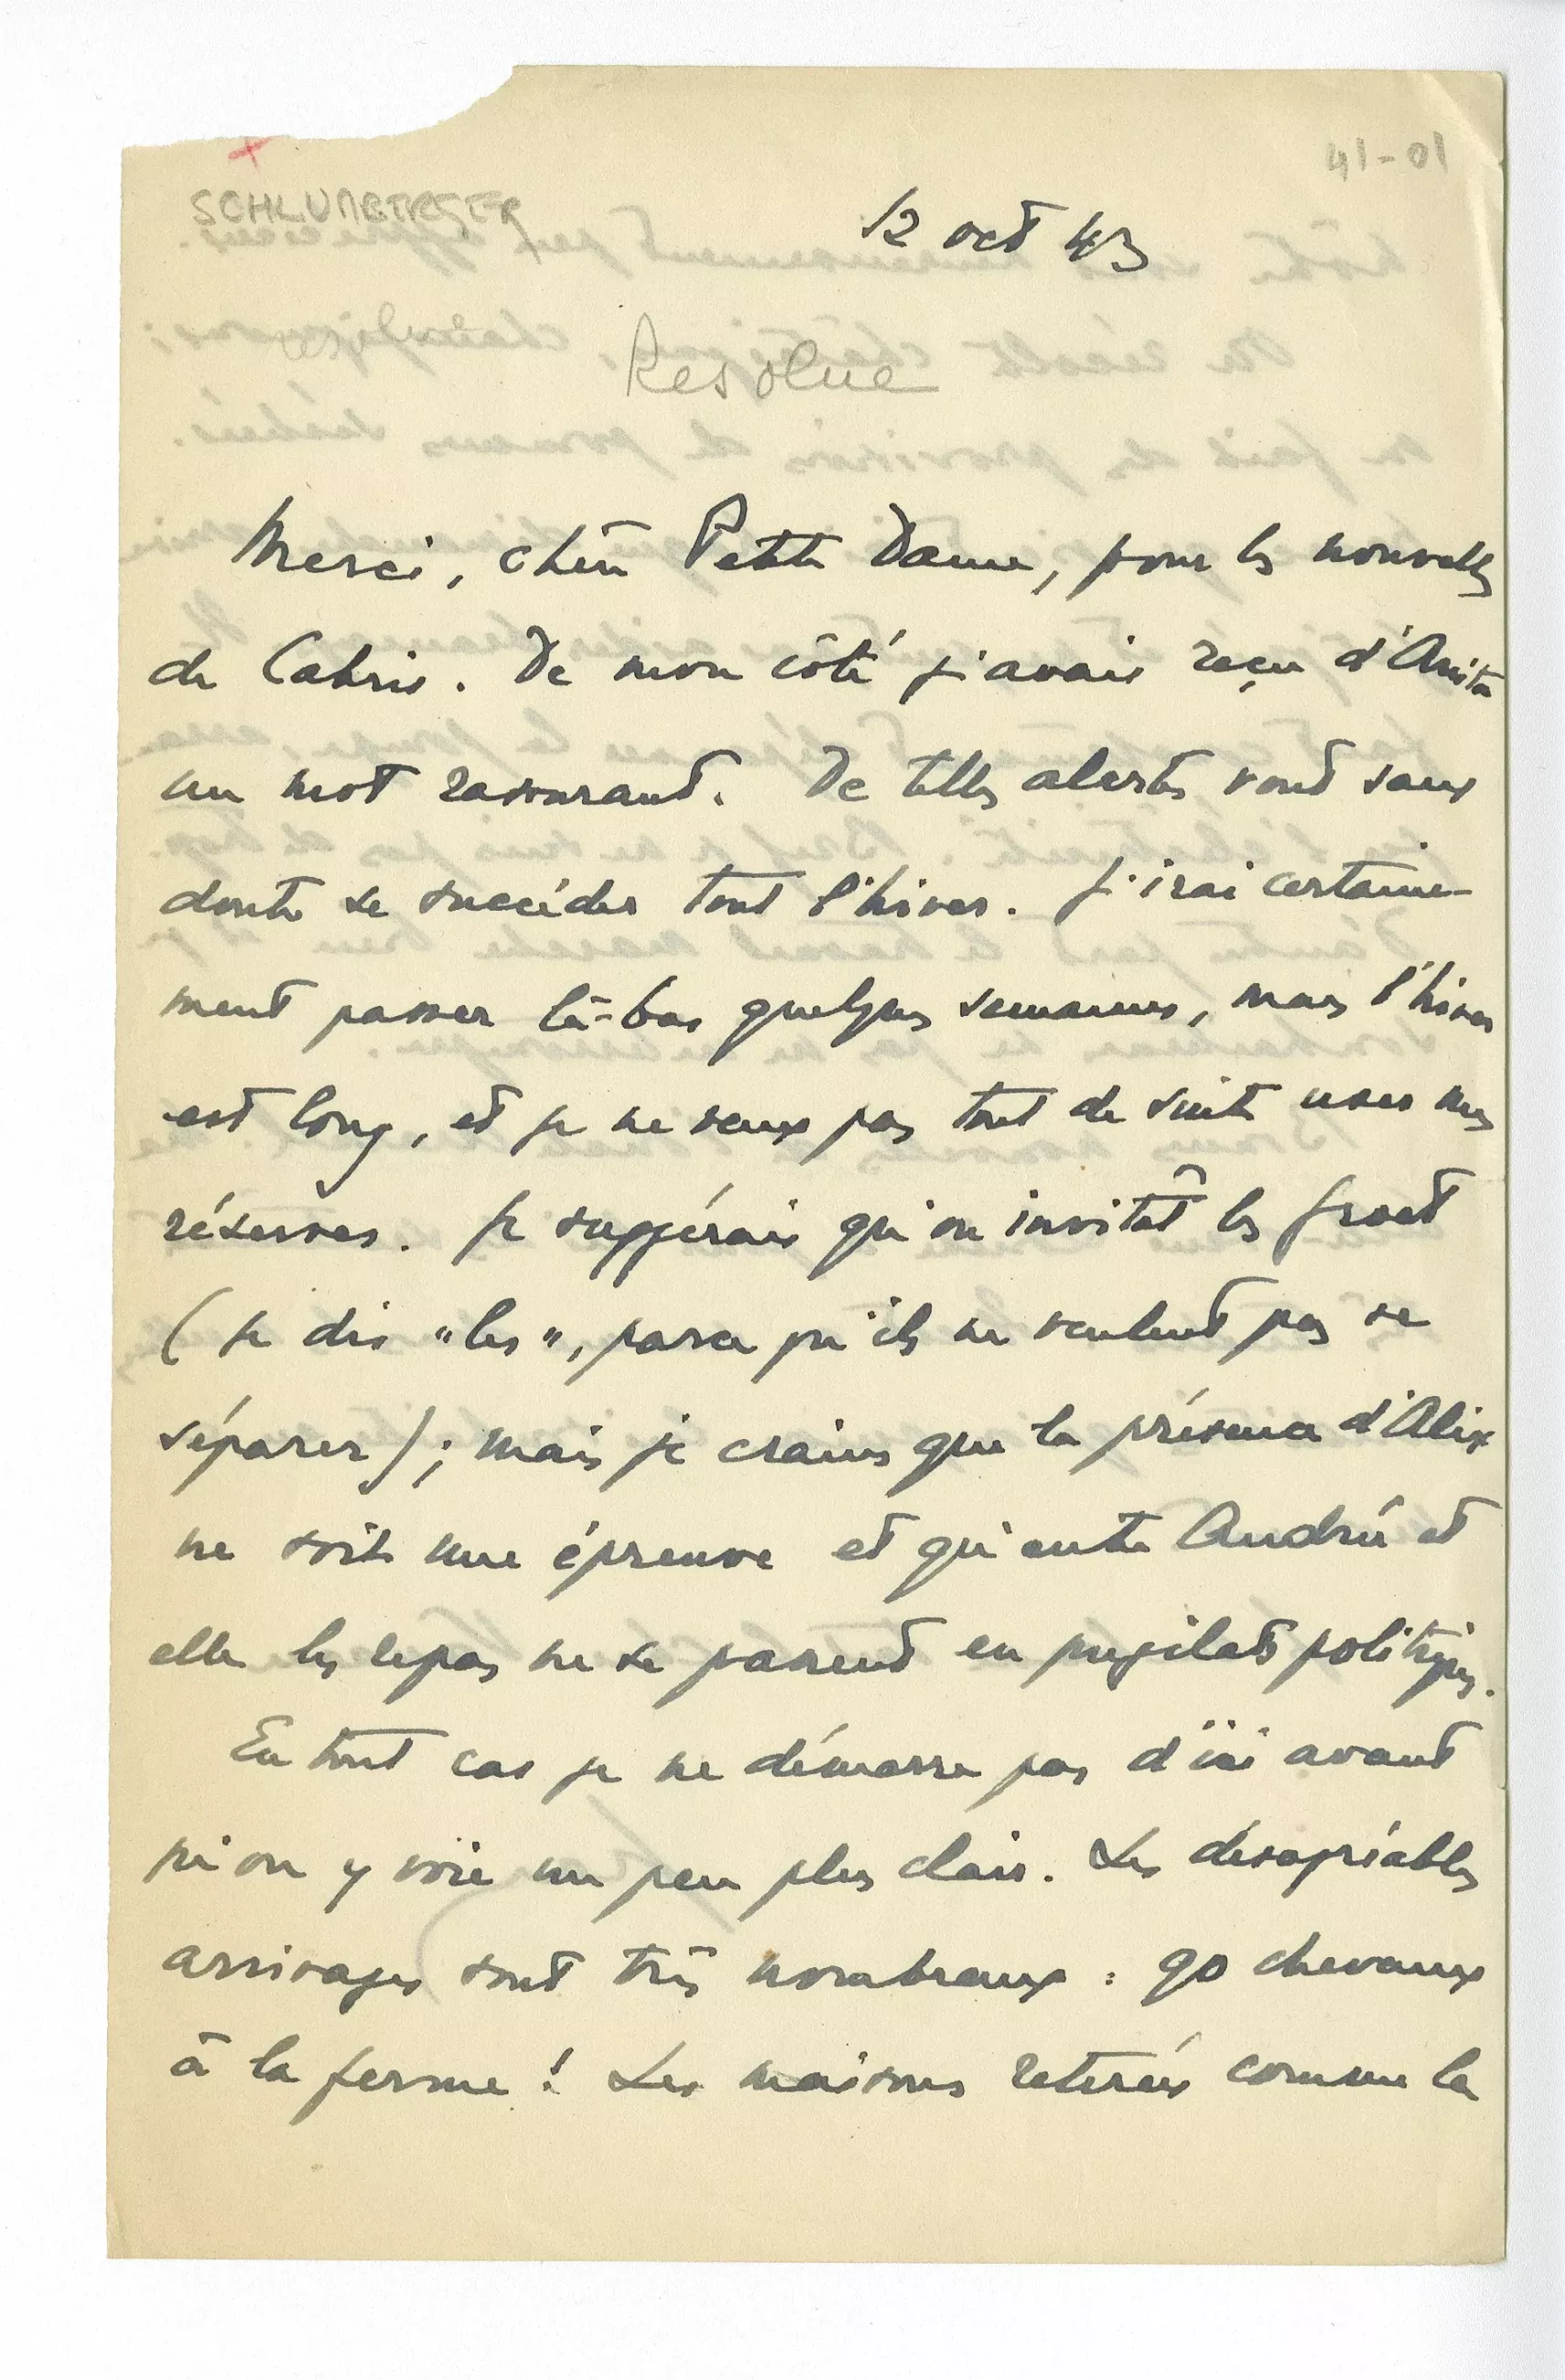 41-01
SCHLUMBERGER
12 oct 43
Resolue
Merci, chère Petite Dame, pour les nouvelles
de Cabris. De mon côté j'avais reçu d'Anita
un mot rassurant. De telles alertes vont sans
doute se succéder tout l'hiver. J'irai certaine-
ment passer là-bas quelques semaines, mais l'hiver
est long, et je ne veux pas tout de suite user mes
réserves. Je suggérais qu'on invitât les Groet
(je dis "les", parce qu'ils ne veulent pas se
séparer); mais je crains que la présence d'Alix
ne soit une épreuve et qu'entre Andrée et
elle les repas ne se passent en pugilats politiques.
En tout cas je ne démarre pas d'ici avant
qu'on y voie un peu plus clair. Les désagréables
arrivages sont très nombreux : 90 chevaux
à la ferme ! Les maisons retirées comme la